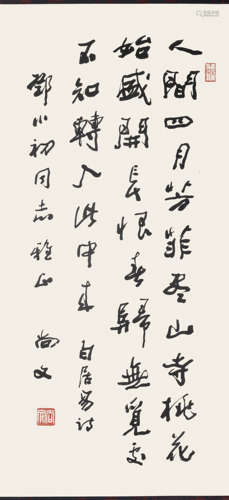 人間四月芳菲尽山寺桃花
始盛開長恨春歸無覓處
不知轉入此中来 白居易诗
鄧小初同志雅正 尚文